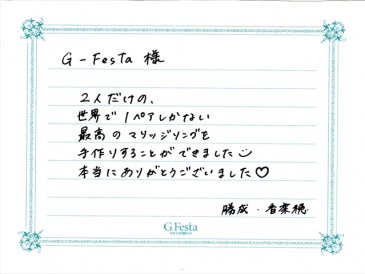 G-Festa 様
2人だけの、
世界で1ペアしかない
最高のマリッジリングを
手作りすることができました
本当にありがとうございました♡
勝成・香菜穂
G.Festa